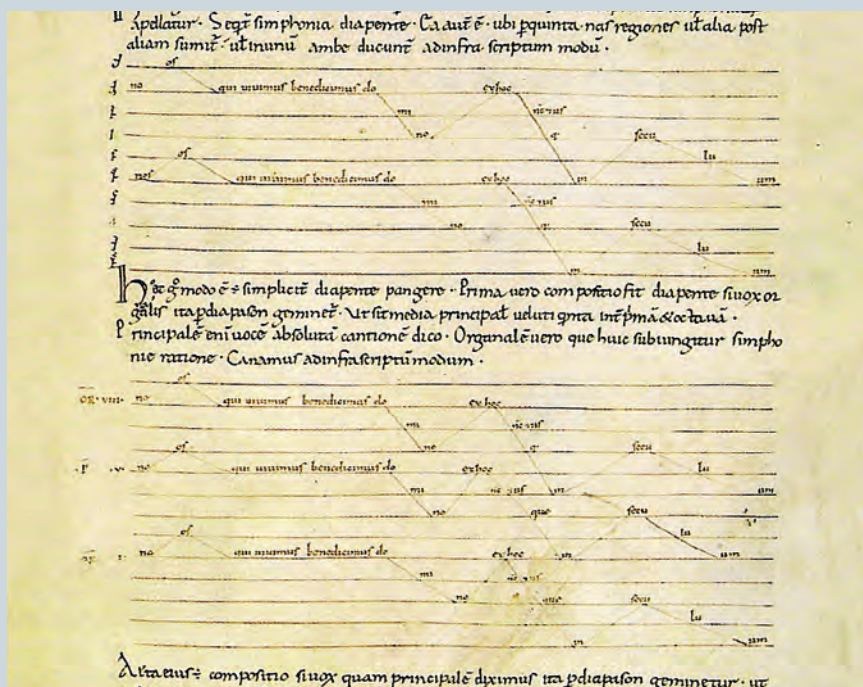 apellatur · Seqt̄ simphonia diapente · Ca aut̄ ē · ubi p̱quinta nas regiones ul̄ alia post
aliam sumit̄ · ul̄ inunū ambe ducunt̄ adinfra scriptum modū ·
os
no qui uiuimus benedicimus do ex hoc
mi n̄c & usq
no q secu
lu
os
nos qui uiuimus benedicimus do in ex hoc um
mi
no q secu
lu
in um
modo ē simplicit̄ diapente pangere · Prima uero compositio fit diapente siuox or
gālis ita p̱diapason geminet̄ · Ut sit media principal̄ ueluti qͥnta int̄ p̄mā & octauā ·
Principalē eni uocē absolutā cantionē dico · Organalē uero que huic subiungitur simpho
nie ratione · Canamus adinfrascriptū modum ·
os
OR · VIII · no qui uiuimus benedicimus do ex hoc
mi
no q secu
P · V · no qui uiuimus benedicimus do ex hoc lu
mi in um
no que secu
os lu
no qui uiuimus benedicimus do ex hoc in um
mi
no que secu
lu
in um
compositio siuox quam principalē diximus ita p̱diapason geminetur · ut